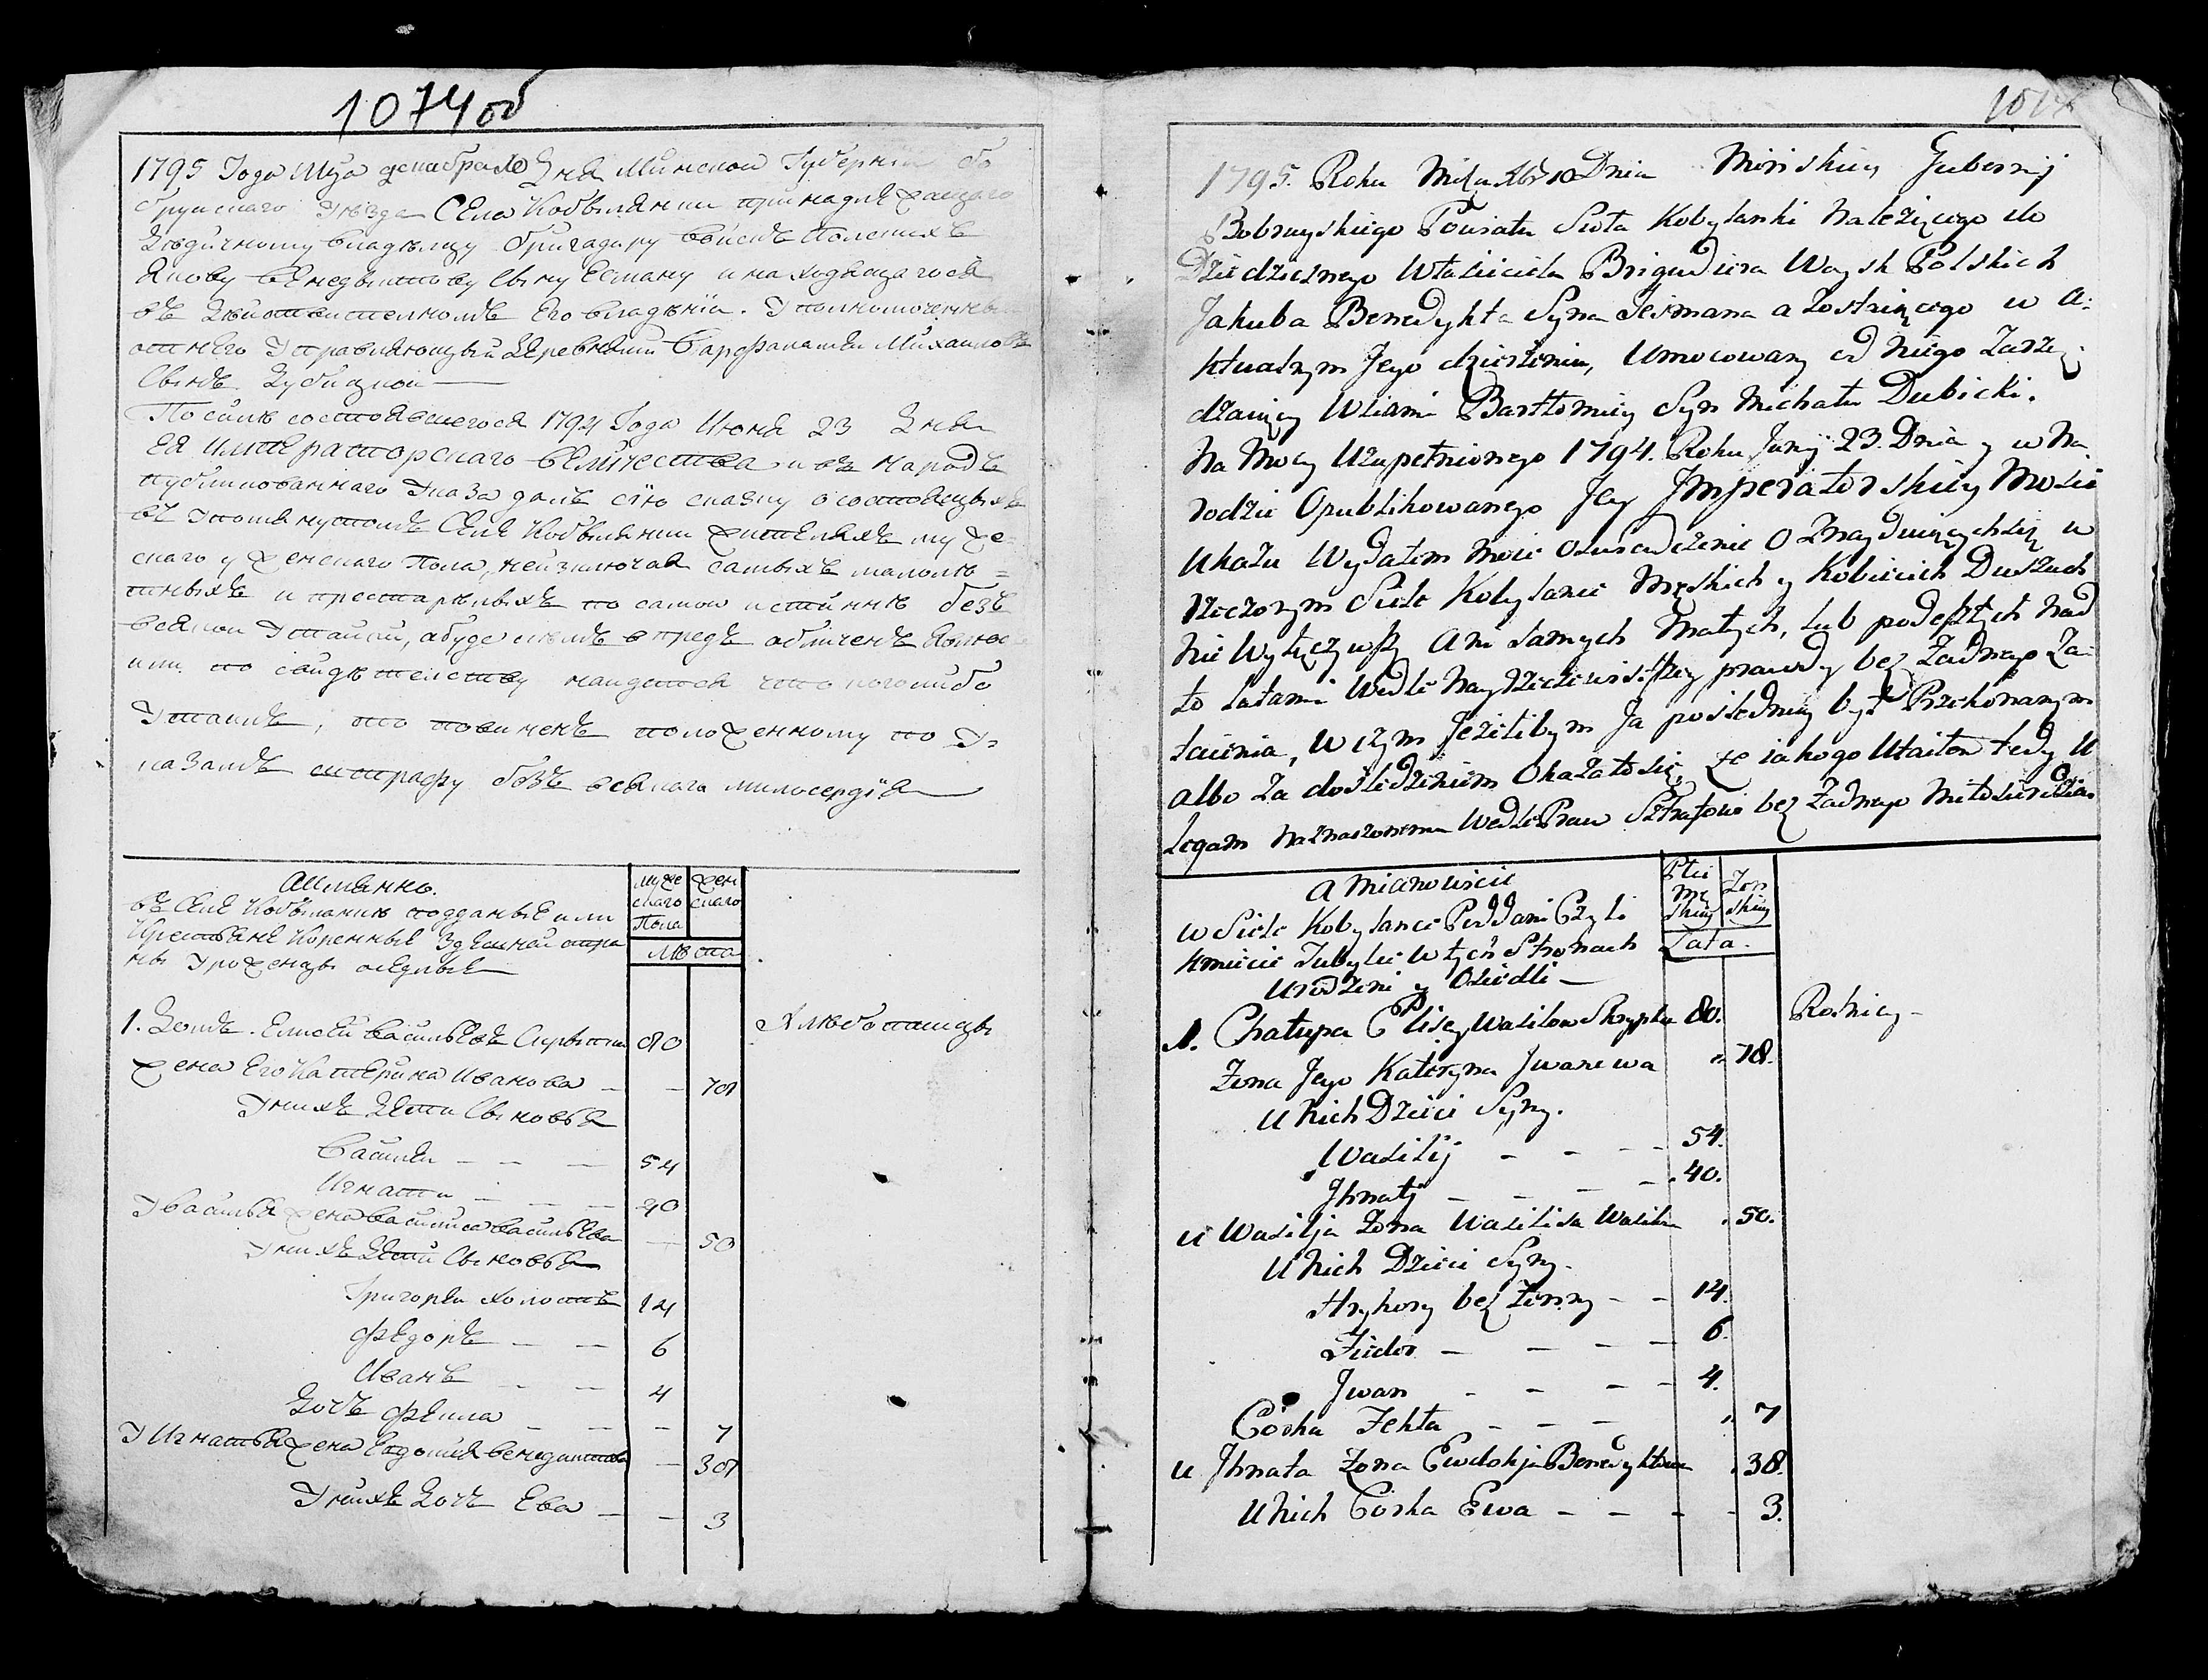 1074 об
1795 Года Мца декабря 10 Дня Минской Губернии Бо
бруйскаго Уезда Села Кобылянки принадлежащаго
Дедичному владельцу бригадиру войскъ Полскихъ
Якову Бенедыктову Сыну Есману и находящагося
въ Действителномъ Его владении. Уполномоченны
от него Управляющый Деревнями Барфаламей Михаиловъ
Сынъ Дубицкой —
По силе состоявшегося 1794 Года Июня 23 Дня
Ея Императорскаго Величества и въ народъ
публикованнаго Указа далъ сию сказку о состоящыхъ
въ упомянутомъ Селе Кобылянки жителяхъ муже
скаго у женскаго Пола, неизключая самыхъ малоле =
тныхъ и престарелыхъ по самой истинне безъ
всякой Утайки, а буде въ чемъ впредь обличенъ явлюсь
или по свидетелству найдется что кого либо
Утаилъ, то повиненъ положенному по У
казамъ штрафу безъ всякаго милосердия
Аименно.
въ Селе Кобылянке подданые или
Крестьяне Коренные Здешнай стра
ны Уроженцы оседлые
муже
скаго
жен
скаго
Пола
Лета
1. Домъ. Елисей Васильевъ Скрыпка 80 Хлебопашцы
жена Его Катерина Иванова — — 78
У нихъ Дети Сыновья
Василей — — — 54
Игнатий — — — 40
У Василья жена Василиса Васильева — 50
У нихъ Дети Сыновья
Григорей холостъ 14
Федоръ — — 6
Иванъ — — 4
Дочь Фекла — — — — 7
У Игнатья жена Евдокия Бенедиктова — 38
У нихъ Дочь Ева — — 3
1074
1795. Roku Mśca Xbr 10 Dnia Mińskiey Gubernij
Bobruyskiego Powiatu Sioła Kobylanki Należącego do
Dziedzicznego Właściciela Brigadiera Woysk Polskich
Jakuba Benedykta Syna Jeśmana a Zostaiącego w A:
ktualnym Jego dzierżeniu, Umocowany od Niego Zarzą:
dzaiący Wsiami Bartłomiey Syn Michała Dubicki.
Na Mocy Uzupełnionego 1794. Roku Junÿ 23. Dnia y w Na
rodzie Opublikowanego Jey Jmperatorskiey Mości
Ukazu Wydałem Moie Oświadczenie O Znayduiącychsię w
rzeczonym Siole Kobylance Męskich y Kobiecich Duszach
Nie Wyłączywszy Ani Samych Małych, lub podeszłych Nad
to latami Wedle Nayrzeczewistszey prawdy bez Żadnego Za:
taienia, W czym Jeżelibym Ja pośledniey był Przekonanym
albo Za dośledzeniem Okazałosię, że iakogo Utaiłem tedy U
legam Naznaczonemu Wedle Praw Sztrafowi bez Żadnego Miłosierdzia
A Mianowicie
w Siole Kobylance Poddani Czyli
Kmiecie Tubylce W tych Stronach
Urodzeni y Osiedli —
Płci
Mę
skiey
Żeń
skiey
Lata.
1. Chałupa Elisey Wasilow Skrypka 80. Rolnicy —
Żona Jego Kateryna Jwanowa „ 78.
U Nich Dzieci Syny.
Wasilij — — — 54.
Jhnatÿ — — — 40.
U Wasilja Żona Wasilisa Wasilewa „ 50.
U Nich Dzieci Syny.
Hryhory bez Żonny — — 14.
Fiedor — — — — 6.
Jwan — — — — 4.
Córka Fekta — — — „ 7
U Jhnata Żona Ewdokja Benedyktowa „ 38.
U Nich Córka Ewa — — — — 3.